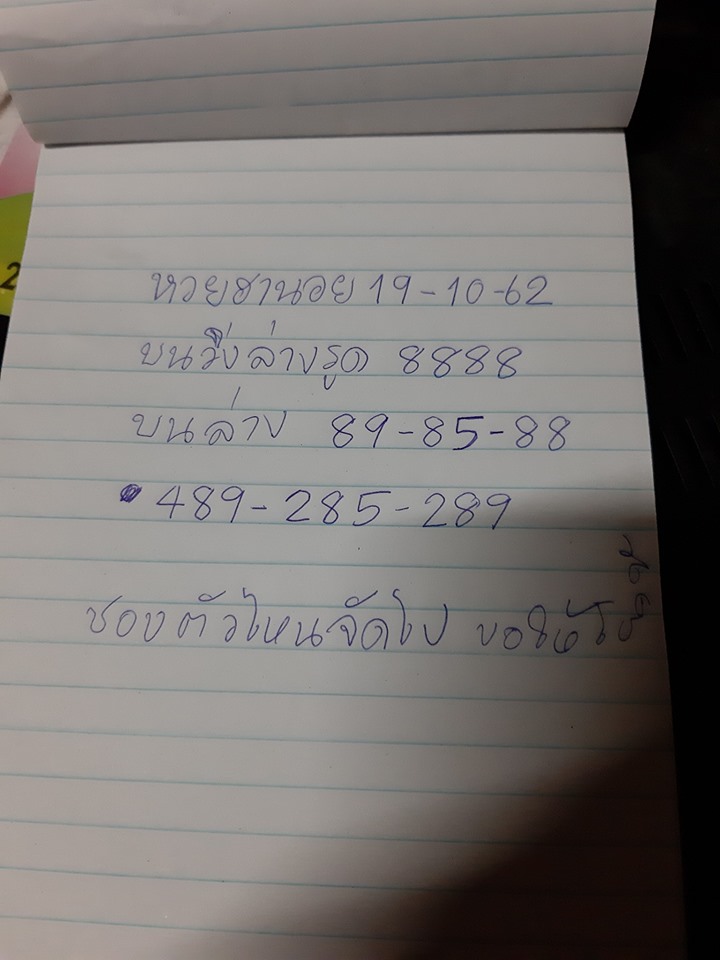 หวยฮานอย 19-10-62
บนวิ่งล่างรูด 8888
บนล่าง 89-85-88
489-285-289
ชอบตัวไหนจัดไป ขอให้โชค
2